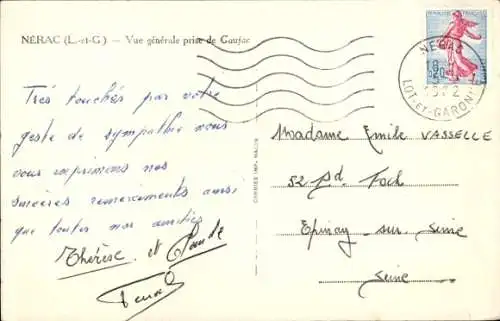 NÉRAC (L.-et-G.) — Vue générale prise de Gaujac
NERAC
LOT-et-GARONNE
Très touchés par votre
geste de sympathie nous
vous exprimons nos
sincères remerciements ainsi
que toutes nos amitiés
Thérèse et Claude
Madame Emile VASSELLE
52 Bd. Foch
Epinay-sur-Seine
Seine